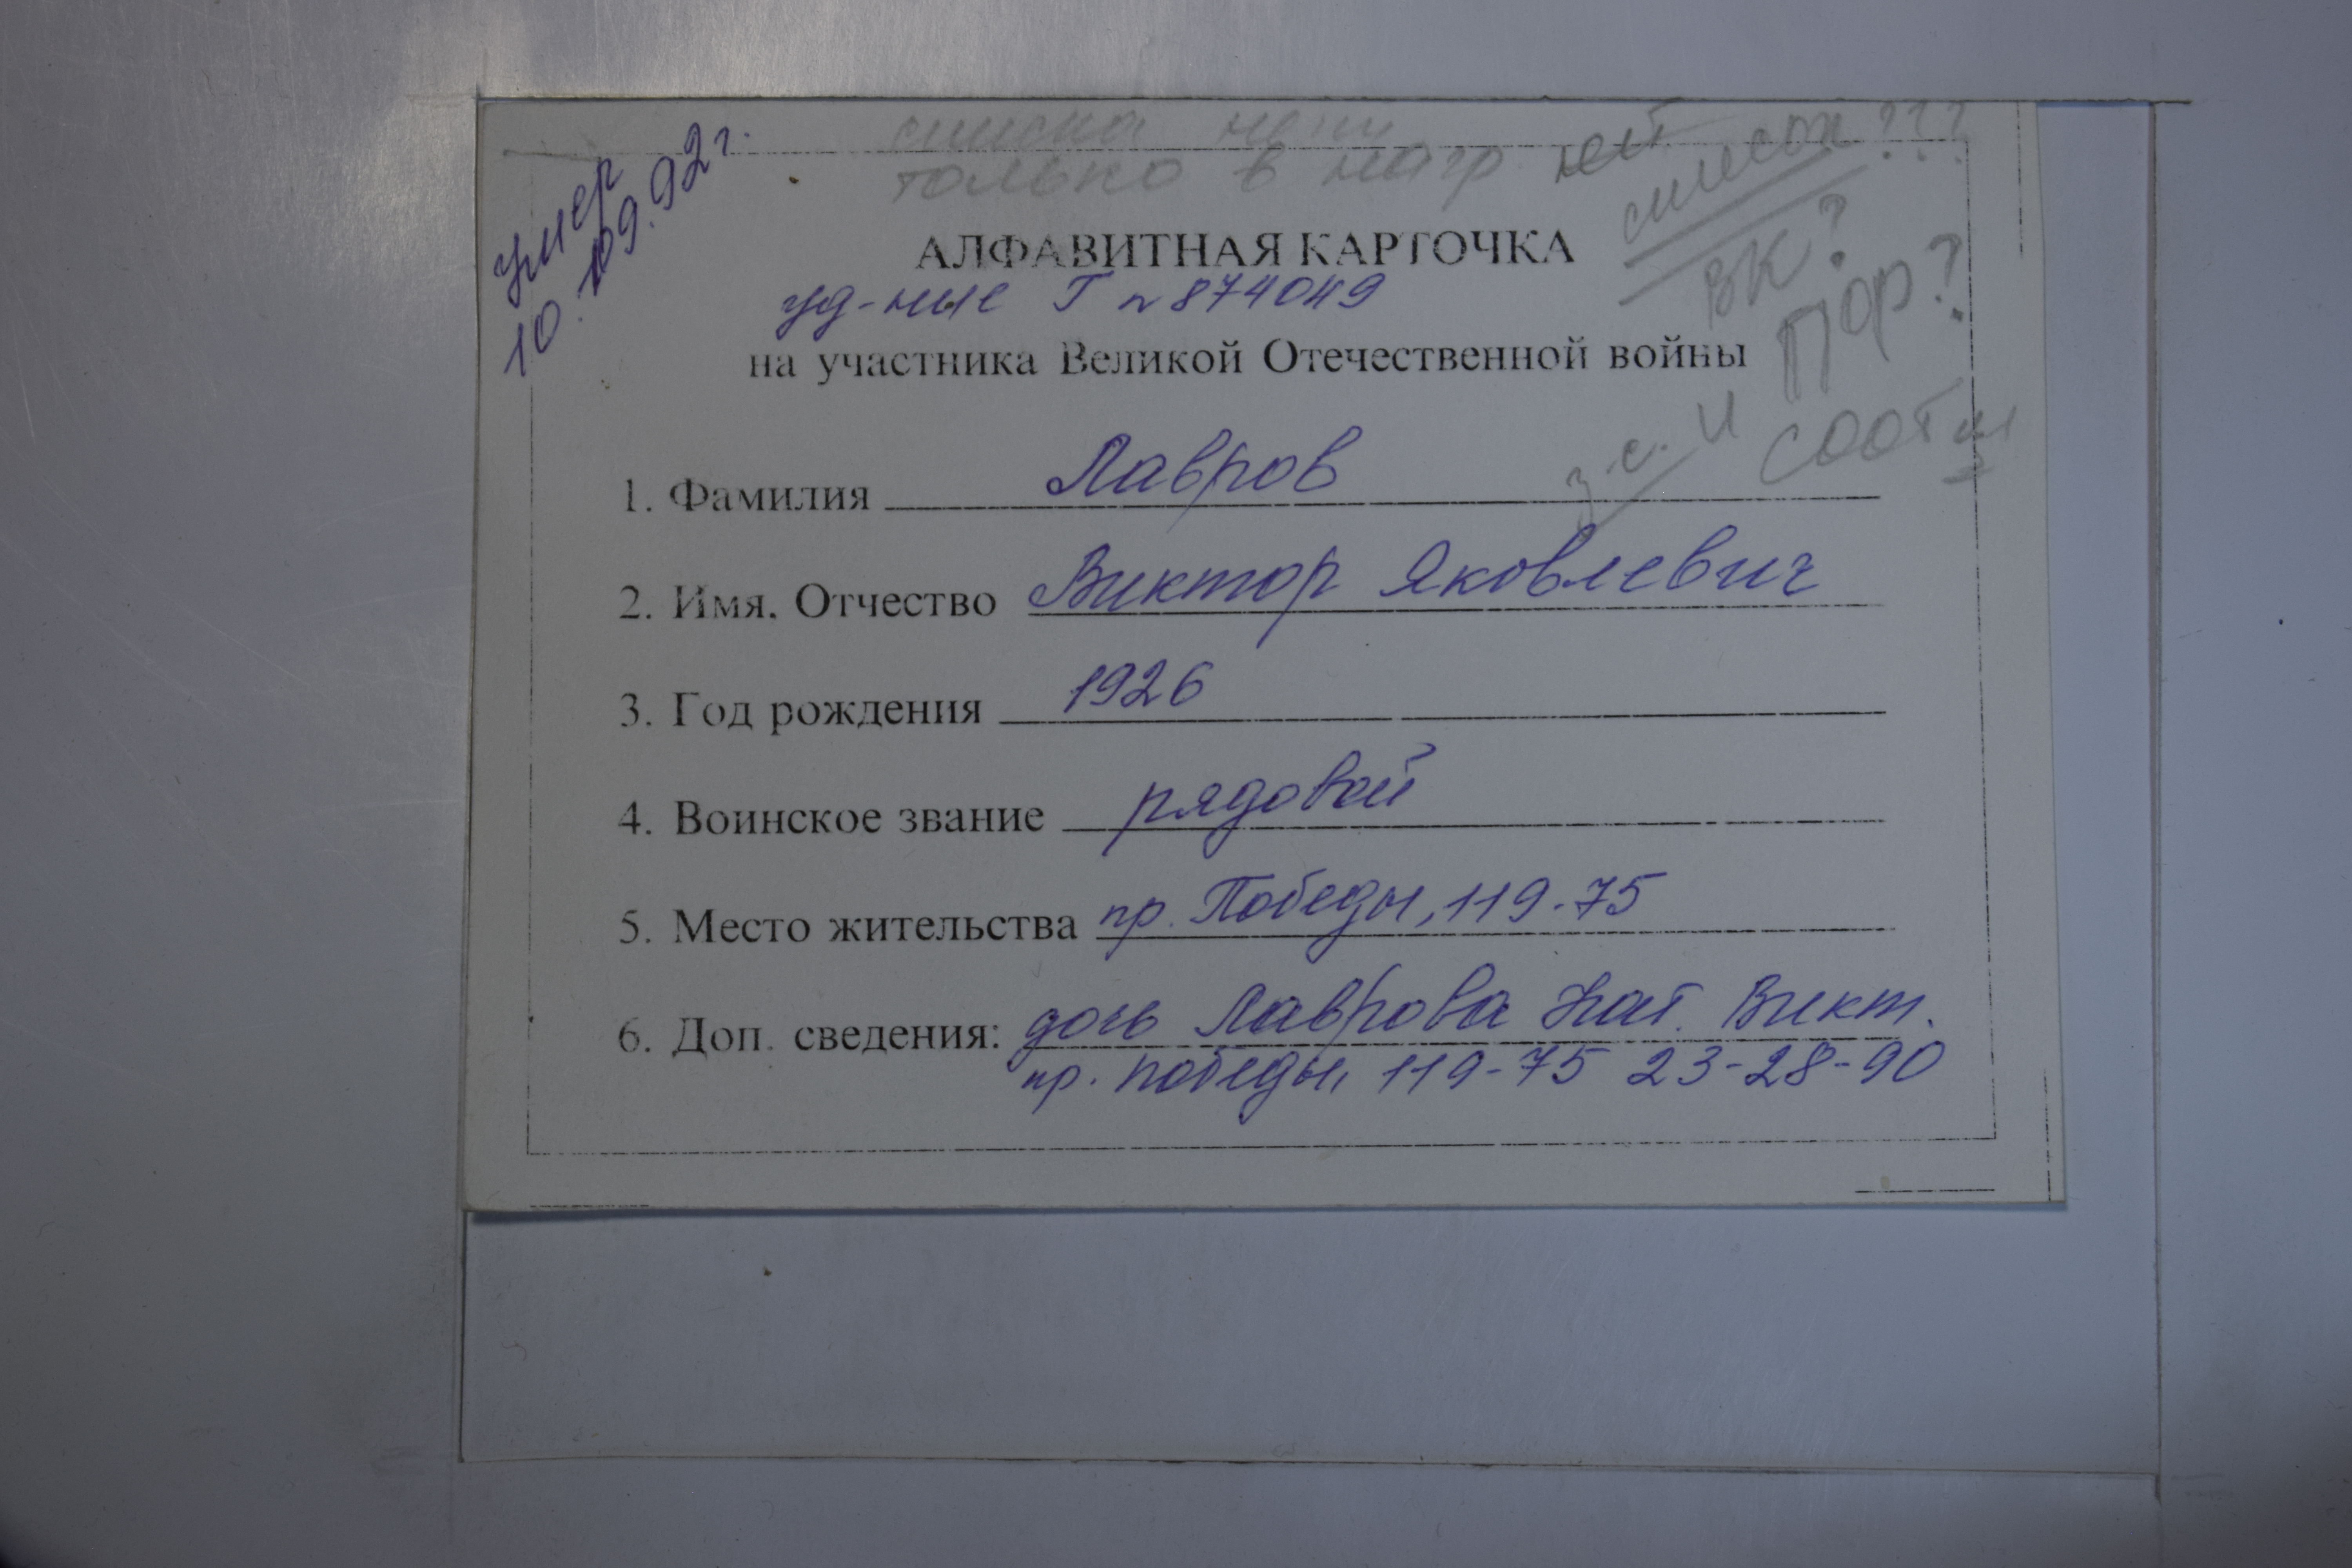 умер
10.09.92 г.
списка нет
только в нагр. ней
список???
ВК?
Пор?
АЛФАВИТНАЯ КАРТОЧКА
уд-ние Г № 874049
на участника Великой Отечественной войны
з.с. и соотв
1. Фамилия Лавров
2. Имя, Отчество Виктор Яковлевич
3. Год рождения 1926
4. Воинское звание рядовой
5. Место жительства пр. Победы, 119-75
6. Доп. сведения: дочь Лаврова Нат. Викт.
пр. Победы, 119-75 23-28-90